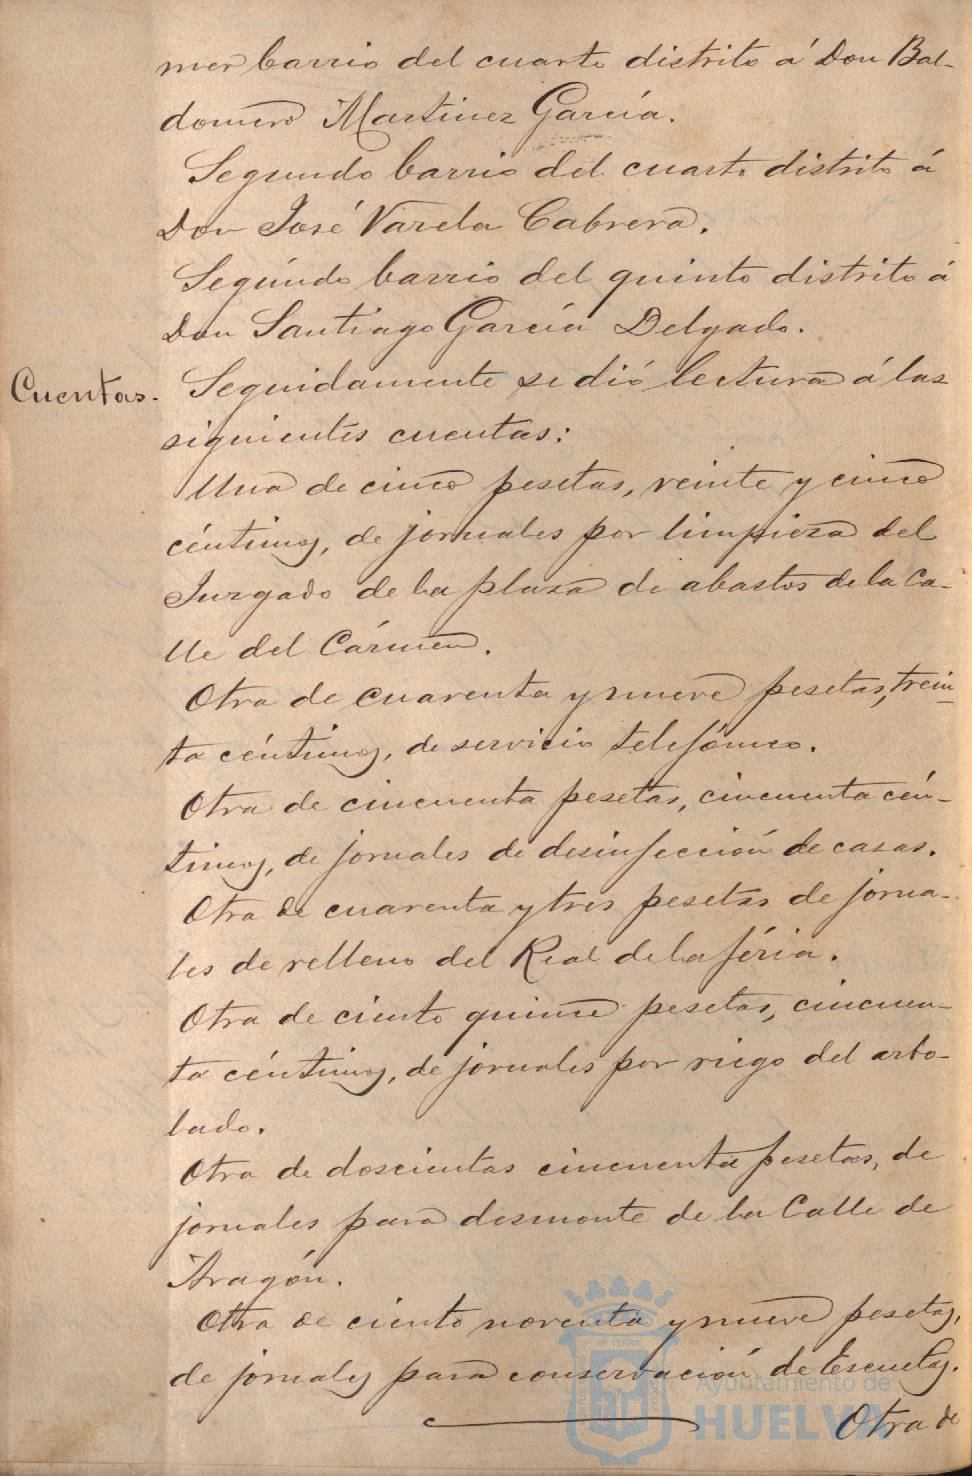 mer barrio del cuarto distrito á Don Bal-
domero Martinez García.
Segundo barrio del cuarto distrito á
Don José Varela Cabrera.
Segundo barrio del quinto distrito á
Don Santiago García Delgado.
Cuentas. Seguidamente se dió lectura á las
siguientes cuentas:
Una de cinco pesetas, veinte y cinco
céntimos, de jornales por limpieza del
Juzgado de la plaza de abastos de la Ca-
lle del Cármen.
Otra de cuarenta y nueve pesetas, trein-
ta céntimos, de servicio telefónico.
Otra de cincuenta pesetas, cincuenta cén-
timos, de jornales de desinfección de casas.
Otra de cuarenta y tres pesetas de jorna-
les de relleno del Real de la féria.
Otra de ciento quince pesetas, cincuen-
ta céntimos, de jornales por riego del arbo-
lado.
Otra de doscientas cincuenta pesetas, de
jornales para desmonte de la Calle de
Aragón.
Otra de ciento noventa y nueve pesetas,
de jornales para conservación de Escuelas.
Otra de
Ayuntamiento de
HUELVA